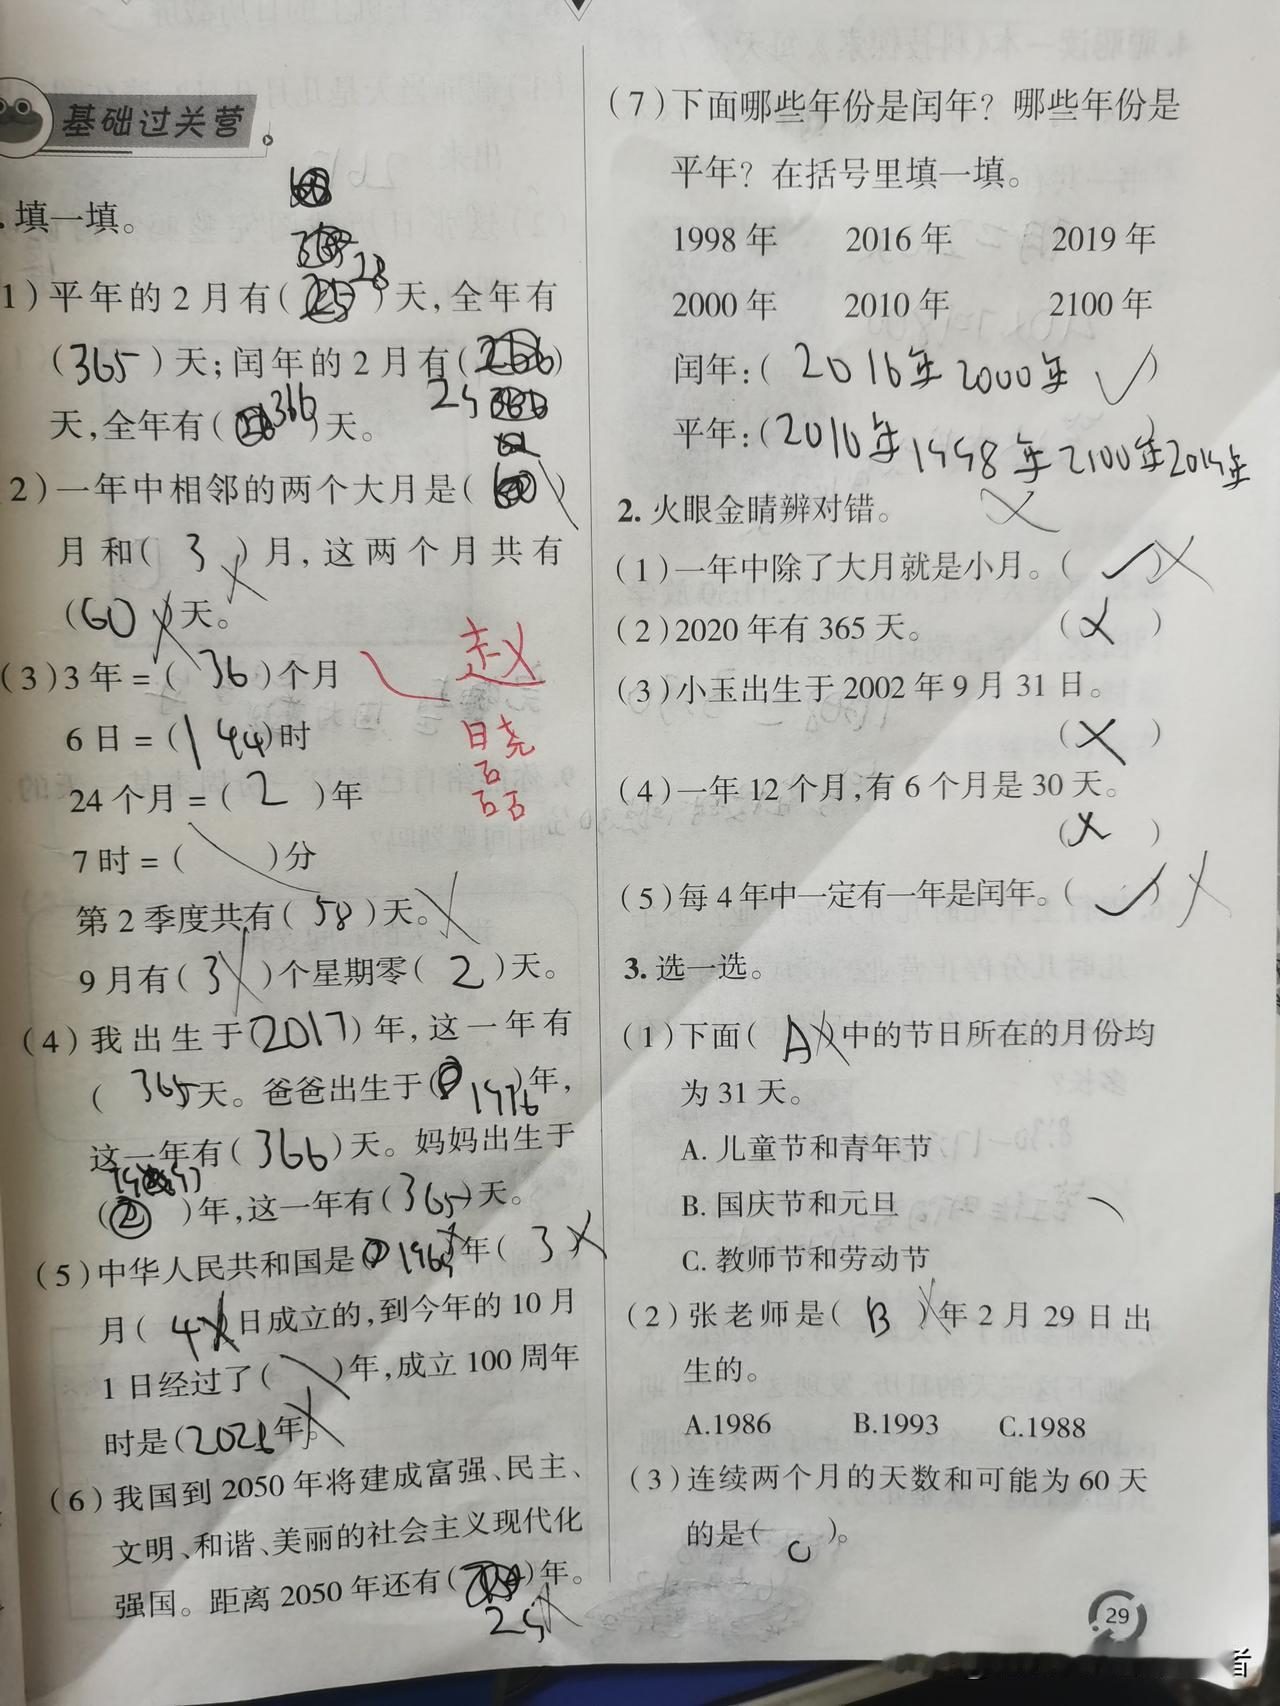 基础过关营
填一填。
1)平年的2月有( 28 )天,全年有
(365)天;闰年的2月有( 29 )
天,全年有( 366 )天。
2)一年中相邻的两个大月是( )
月和( 3 )月,这两个月共有
(60)天。
(3)3年=( 36 )个月
6日=(144)时
24个月=( 2 )年
7时=( )分
第2季度共有( 58 )天。
9月有( 3 )个星期零( 2 )天。
(4)我出生于(2017)年,这一年有
( 365天。爸爸出生于( 1976)年,
这一年有(366)天。妈妈出生于
( )年,这一年有(365)天。
(5)中华人民共和国是 年( 3
月( 4 日成立的,到今年的10月
1日经过了( )年,成立100周年
时是( 年。
(6)我国到2050年将建成富强、民主、
文明、和谐、美丽的社会主义现代化
强国。距离2050年还有( )年。
赵
(7)下面哪些年份是闰年?哪些年份是
平年?在括号里填一填。
1998年 2016年 2019年
2000年 2010年 2100年
闰年:( 2016年 2000年 )
平年:(2010年 1998年 2100年 2019年
2.火眼金睛辨对错。
(1)一年中除了大月就是小月。( ✓ )
(2)2020年有365天。 ( × )
(3)小玉出生于2002年9月31日。
( × )
(4)一年12个月,有6个月是30天。
( × )
(5)每4年中一定有一年是闰年。( ✓ )
3.选一选。
(1)下面( A 中的节日所在的月份均
为31天。
A.儿童节和青年节
B.国庆节和元旦
C.教师节和劳动节
(2)张老师是( B )年2月29日出
生的。
A.1986 B.1993 C.1988
(3)连续两个月的天数和可能为60天
的是( C )。
29